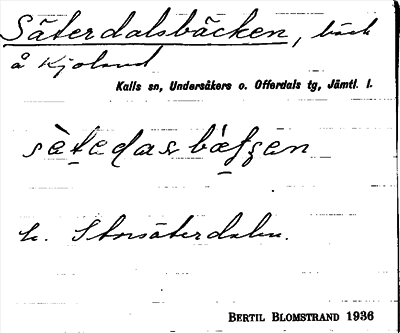 Säterdalsbäcken, bäck
å Kjoland
Kalls sn, Undersåkers o. Offerdals tg, Jämtl. l.
h. Storsäterdalen.
BERTIL BLOMSTRAND 1936